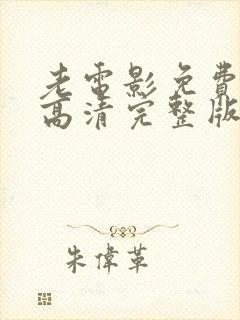 老電影免費
高清完整版
朱偉革